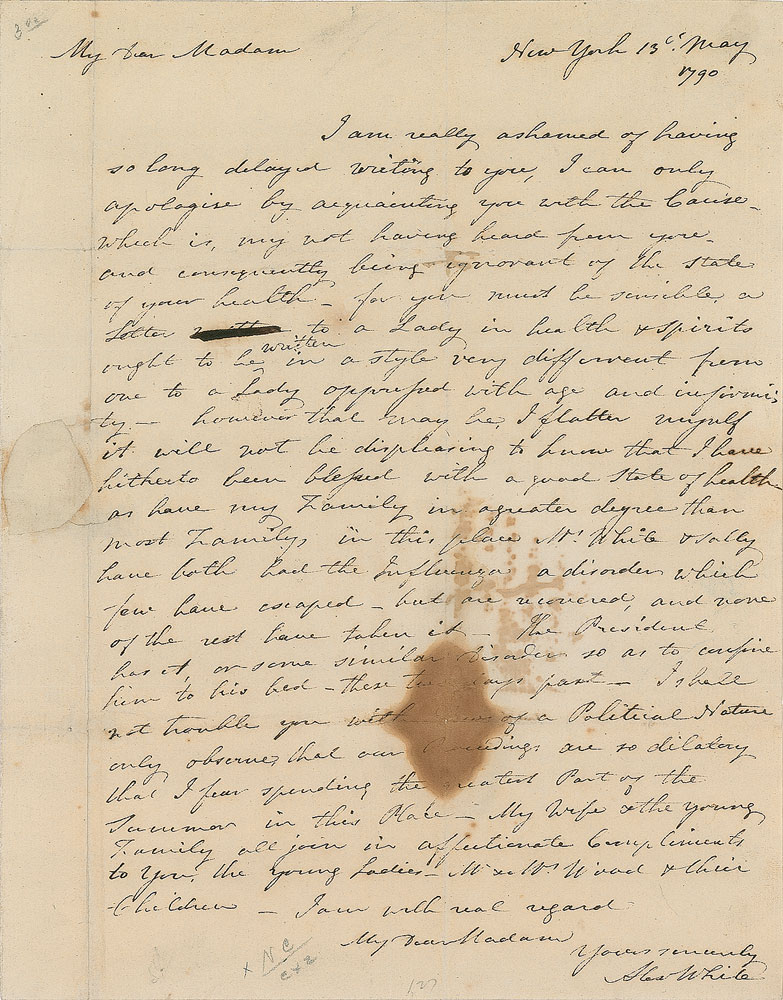 My Dear Madam
New York 13th. May
1790
I am really ashamed of having
so long delayed writing to you, I can only
apologise by acquainting you with the Cause -
which is, my not having heard from you -
and consequently being ignorant of the State
of your health - for you must be sensible a
Letter to a Lady in health & spirits
ought to be written in a style very different from
one to a Lady oppressed with age and infirmi-
ty - however that may be, I flatter myself
it will not be displeasing to know that I have
hitherto been blessed with a good State of health
as have my Family in a greater degree than
most Familys in this place Mrs White & Sally
have both had the Influenza a disorder which
few have escaped - but are recovered, and none
of the rest have taken it - The President
has it, or some similar Disorder so as to confine
him to his bed - these two days past - I shall
not trouble you with News of a Political Nature
only observe, that our Proceedings are so dilatory
that I fear spending the greatest Part of the
Summer in this Place - My Wife & the Young
Family all join in affectionate Compliments
to You, the young Ladies - Mr & Mrs Wood & their
Children - I am with real regard
My Dear Madam
Yours sincerely
Alex White
x NC